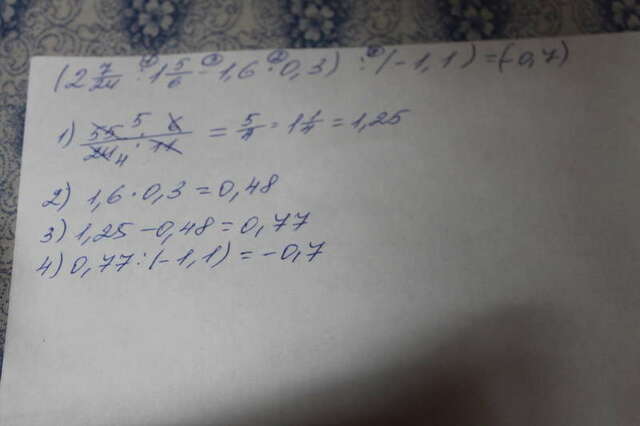 (2 7/24 : 1 5/6 - 1,6 · 0,3) : (-1,1) = (-0,7)
1) 55 5 · 6 / 24 4 · 11 = 5/4 = 1 1/4 = 1,25
2) 1,6 · 0,3 = 0,48
3) 1,25 - 0,48 = 0,77
4) 0,77 : (-1,1) = -0,7